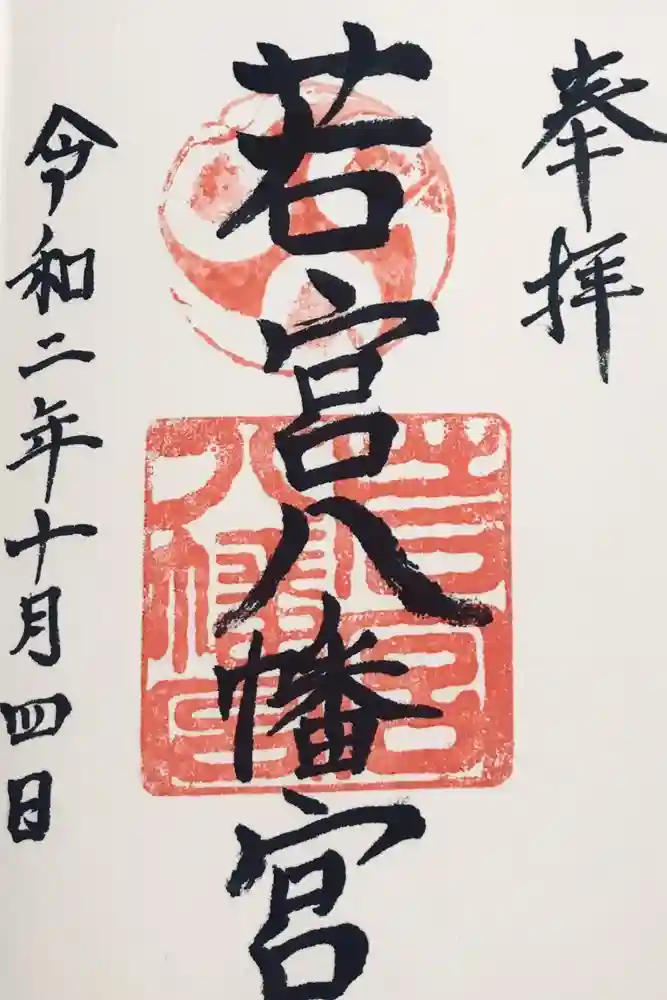 奉拝
若宮八幡宮
令和二年十月四日